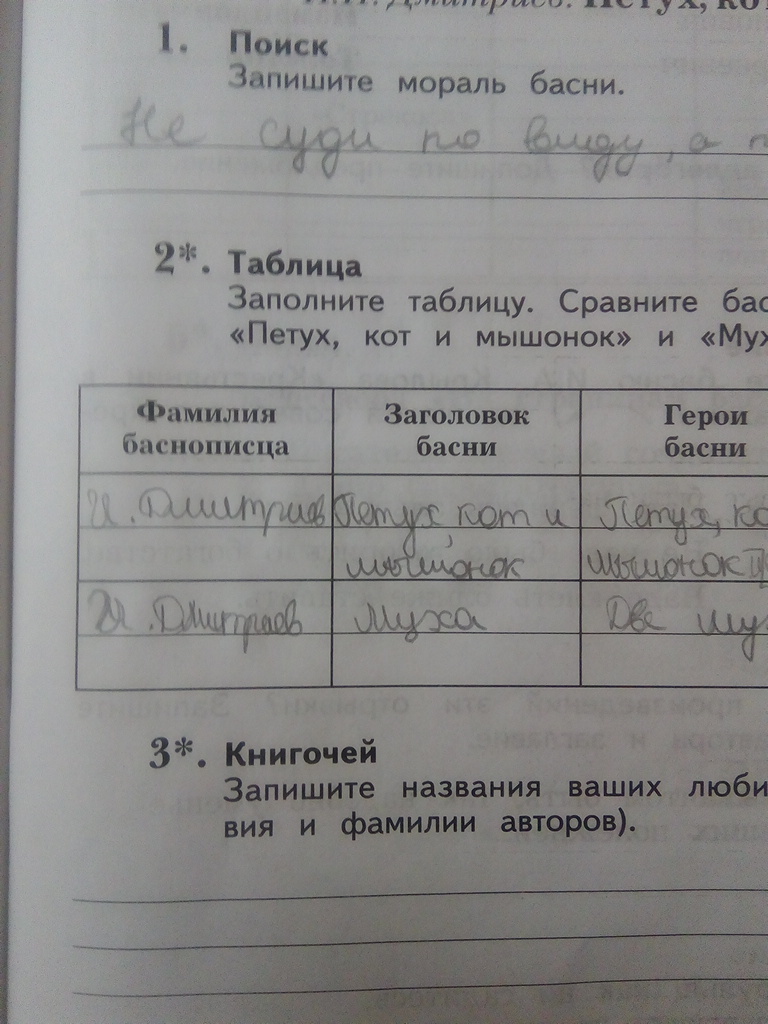 И.И. Дмитриев. Петух, кот
1. Поиск
Запишите мораль басни.
Не суди по виду, а п
2*. Таблица
Заполните таблицу. Сравните бас
«Петух, кот и мышонок» и «Мух
Фамилия баснописца Заголовок басни Герои басни
И. Дмитриев Петух, кот и Петух, ко
мышонок мышонок
И. Дмитриев Муха Две му
3*. Книгочей
Запишите названия ваших люби
вия и фамилии авторов).